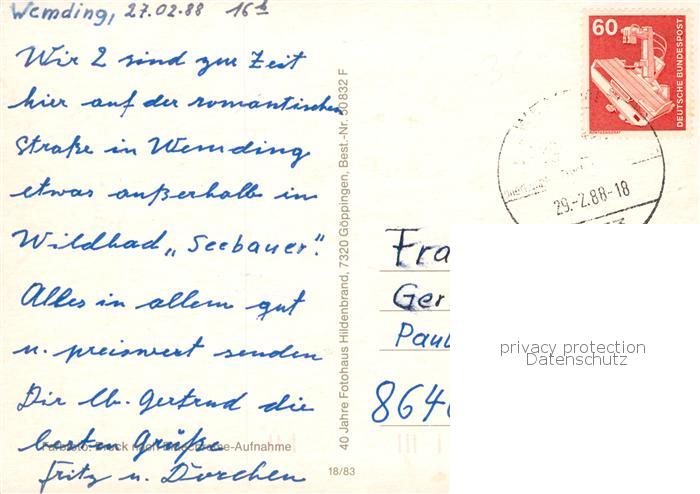 Wemding, 27.02.88 16h
Wir 2 sind zur Zeit
hier auf der romantischen
Straße in Wemding
etwas außerhalb in
Wildbad „Seebauer".
Alles in allem gut
u. preiswert senden
Dir lb. Gertrud die
besten Grüße
Fritz u. Dorchen
Farbfoto: Druck nach -Aufnahme
18/83
40 Jahre Fotohaus Hildenbrand, 7320 Göppingen, Best.-Nr. 50832 F
60
DEUTSCHE BUNDESPOST
RÖNTGENGERÄT
29.-2.88-18
Fra
Ger
Paul
864
privacy protection
Datenschutz